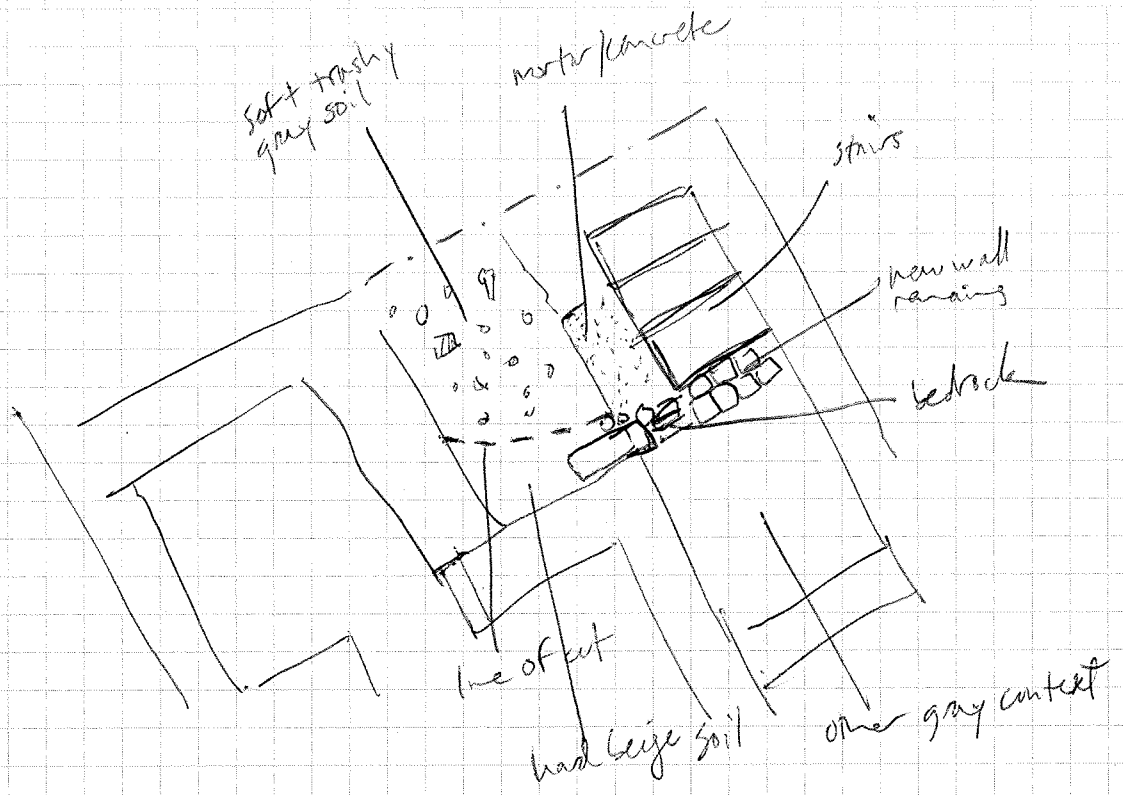 soft trashy
gray soil
mortar/concrete
stairs
new wall
remains
bedrock
line of cut
hard beige soil
other gray context